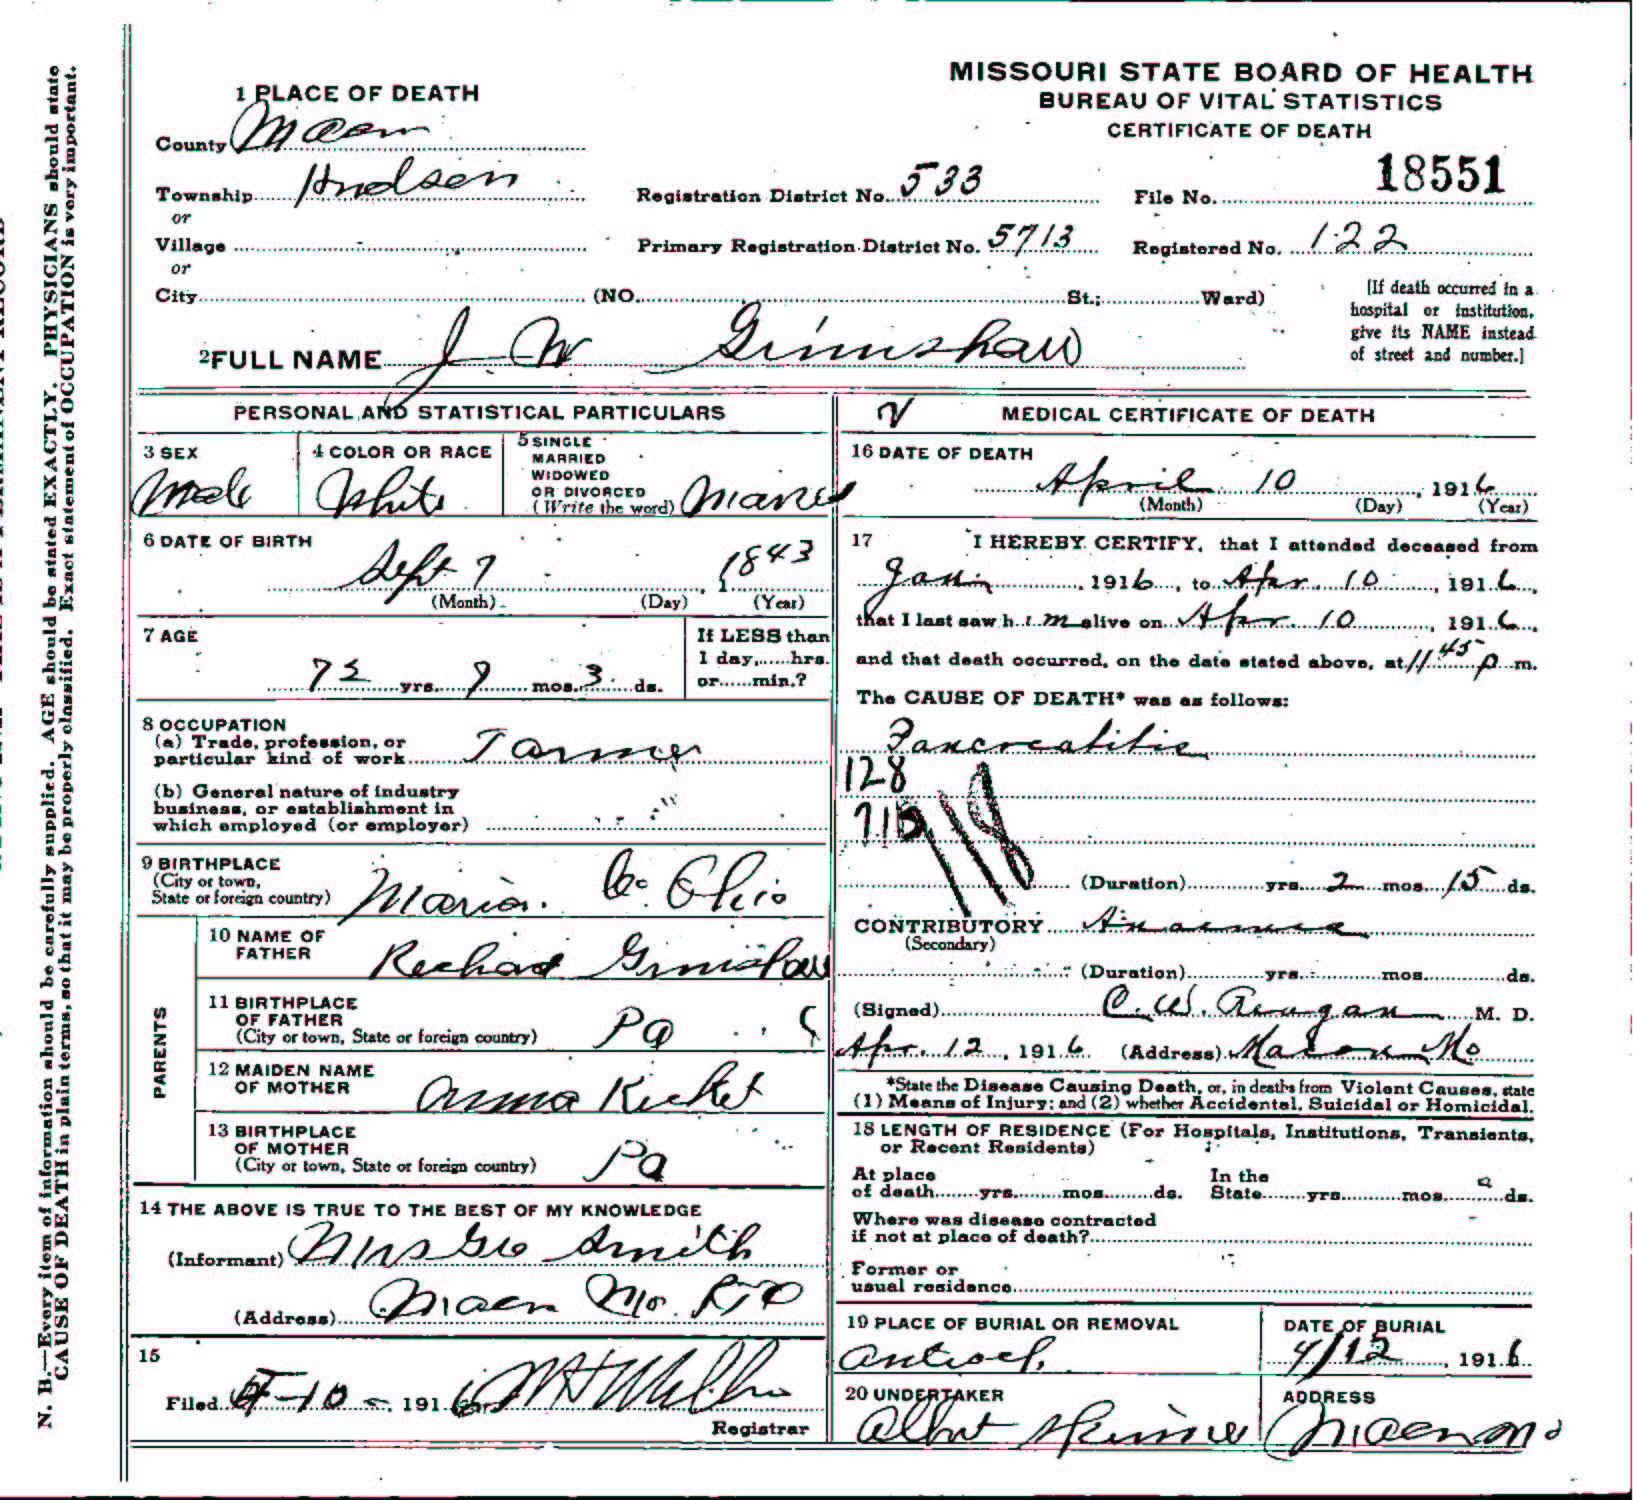 MISSOURI STATE BOARD OF HEALTH
BUREAU OF VITAL STATISTICS
CERTIFICATE OF DEATH
1 PLACE OF DEATH
County Macon
Township Hudson Registration District No. 533 File No. 18551
or
Village Primary Registration District No. 5713 Registered No. 122
or
City (NO. St.; Ward)
[If death occurred in a hospital or institution, give its NAME instead of street and number.]
2 FULL NAME J W Grimshaw
PERSONAL AND STATISTICAL PARTICULARS
3 SEX Male
4 COLOR OR RACE White
5 SINGLE MARRIED WIDOWED OR DIVORCED (Write the word) Married
6 DATE OF BIRTH
Sept 7, 1843
(Month) (Day) (Year)
7 AGE
72 yrs. 7 mos. 3 ds.
If LESS than 1 day,......hrs. or......min.?
8 OCCUPATION
(a) Trade, profession, or particular kind of work Farmer
(b) General nature of industry business, or establishment in which employed (or employer)
9 BIRTHPLACE
(City or town, State or foreign country) Marion Co. Ohio
PARENTS
10 NAME OF FATHER Richard Grimshaw
11 BIRTHPLACE OF FATHER
(City or town, State or foreign country) Pa
12 MAIDEN NAME OF MOTHER
13 BIRTHPLACE OF MOTHER
(City or town, State or foreign country) Pa
14 THE ABOVE IS TRUE TO THE BEST OF MY KNOWLEDGE
(Informant) Mrs Geo Smith
(Address) Macon Mo.
15
Filed 10 1916
Registrar
MEDICAL CERTIFICATE OF DEATH
16 DATE OF DEATH
April 10, 1916
(Month) (Day) (Year)
17 I HEREBY CERTIFY, that I attended deceased from
Jan, 1916, to Apr. 10, 1916,
that I last saw h im alive on Apr. 10, 1916,
and that death occurred, on the date stated above, at 11 45 p m.
The CAUSE OF DEATH* was as follows:
Pancreatitis
128
118
(Duration) yrs. 2 mos. 15 ds.
CONTRIBUTORY Anaemia
(Secondary)
(Duration) yrs. mos. ds.
(Signed) C. W. Reagan M. D.
Apr. 12, 1916 (Address) Macon Mo
*State the Disease Causing Death, or, in deaths from Violent Causes, state
(1) Means of Injury; and (2) whether Accidental, Suicidal or Homicidal.
18 LENGTH OF RESIDENCE (For Hospitals, Institutions, Transients, or Recent Residents)
At place of death......yrs......mos......ds. In the State......yrs......mos......ds.
Where was disease contracted if not at place of death?
Former or usual residence
19 PLACE OF BURIAL OR REMOVAL Antioch
DATE OF BURIAL 4/12, 1916
20 UNDERTAKER Albert Skinner
ADDRESS Macon Mo
N. B.—Every item of information should be carefully supplied. AGE should be stated EXACTLY. PHYSICIANS should state
CAUSE OF DEATH in plain terms, so that it may be properly classified. Exact statement of OCCUPATION is very important.